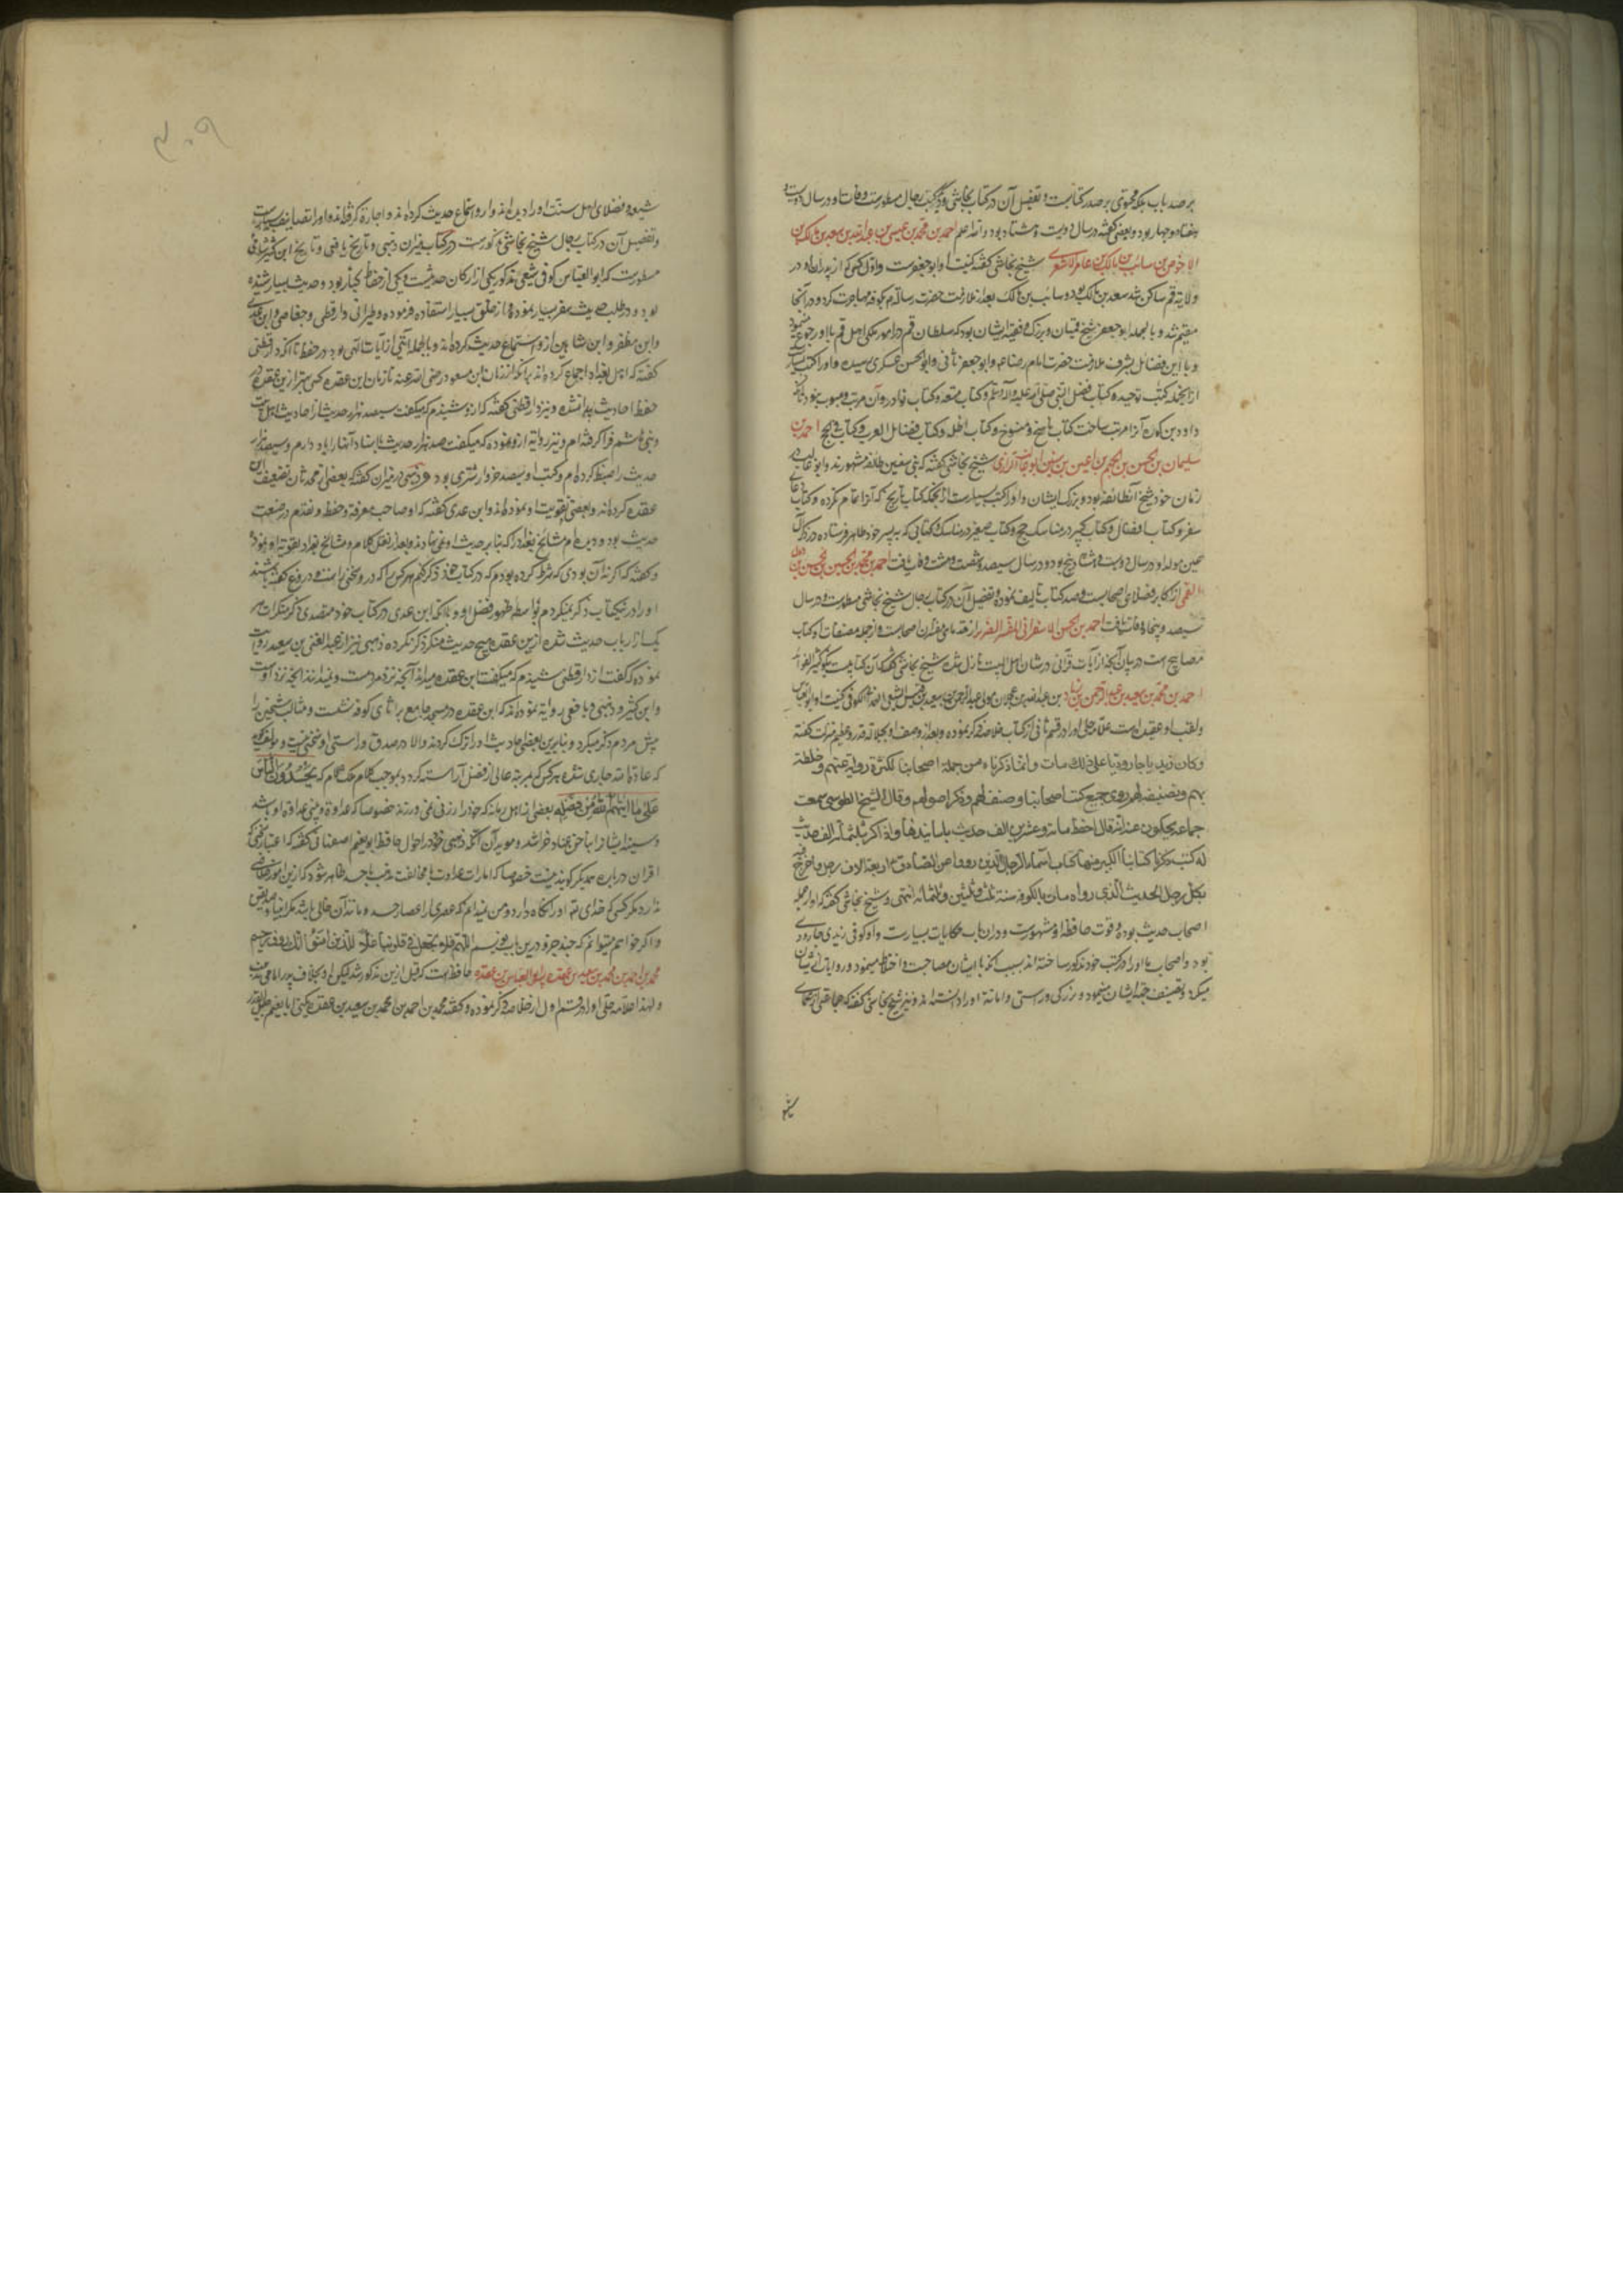 بر صد باب بلکه محتوی بر صد کتابست و تفصیل آن در کتاب نجاشی و دیگر کتب رجال مسطورست وفات او در سال دویست و
هفتاد و چهار بود و بعضی گفته در سال دویست و هشتاد بود و الله اعلم احمد بن محمد بن عیسی بن عبدالله بن سعد بن مالک بن
الاخوص بن سائب بن مالک بن عامر الاشعری شیخ نجاشی گفته کنیت او ابو جعفرست و اول کسی که از پدران او در
ولایة قم ساکن شد سعد بن مالک بود و سائب بن مالک بعد از ملازمت حضرت رسالة م بکوفه مهاجرت کرد و در آنجا
مقیم شد و بالجمله ابو جعفر شیخ قمیان و بزرک و فقیه ایشان بود که سلطان قم در امور ملکی اهل قم با او رجوع مینمود
و با این فضائل بشرف ملازمت حضرت امام رضا عم و ابو جعفر ثانی و ابو الحسن عسکری رسیده و او را کتب بسیارست
از آنجمله کتب توحید و کتاب فضل النبی صلی الله علیه و آله و سلم و کتاب متعه و کتاب نوادر و آن مرتب و مبوب نبود تا آنکه
داود بن کوره آنرا مرتب ساخت کتاب ناسخ و منسوخ و کتاب اظله و کتاب فضائل العرب و کتاب فی الحج احمد بن
سلیمان بن الحسن بن الجهم بن اعین بن سنسن ابو غالب الزراری شیخ نجاشی گفته که بنی سنسن طائفه مشهورند و ابو غالب در
زمان خود شیخ آنطائفه بود و بزرک ایشان و او را کتب بسیارست از آنجمله کتاب تاریخ که آنرا تمام نکرده و کتاب دعای
سفر و کتاب افضال و کتاب کبیر در مناسک حج و کتاب صغیر در مناسک و کتابی که به پسر خود طاهر فرستاده در ذکر آل
عین مولد او در سال دویست و هشتاد و پنج بود و در سال سیصد و شصت و هشت وفات یافت احمد بن محمد بن الحسین بن الحسن بن دول
القمی از اکابر فضلای اصحابست و صد کتاب تالیف نموده و تفصیل آن در کتاب رجال شیخ نجاشی مسطورست و در سال
سیصد و پنجاه وفات یافت احمد بن الحسن الاسفراینی المفسر الضریر از قدمای مفسران اصحابست و از جمله مصنفات او کتاب
مصابیح است در بیان آنچه از آیات قرآنی در شان اهل البیت نازل شده شیخ نجاشی گفته که آن کتابیست نیکو کثیر الفوائد
احمد بن محمد بن سعید بن عبدالرحمن بن زیاد بن عبدالله بن عجلان مولی عبدالرحمن بن سعید بن قیس السبیعی الهمدانی الکوفی کنیت او ابو العباس
و لقب او عقده است علامه حلی او را در قسم ثانی از کتاب خلاصه ذکر نموده و بعد از وصف او بجلالة قدر و عظیم منزلت گفته
و کان زیدیا جارودیا علی ذلک مات و انما ذکرناه من جملة اصحابنا لکثرة روایة عنهم و خلطته
بهم و تصنیفه لهم روی جمیع کتب اصحابنا و صنف لهم و ذکر اصولهم و قال الشیخ الطوسی سمعت
جماعة یحکون عنه انه قال احفظ مائة و عشرین الف حدیث باسانیدها و اذاکر بثلثمائة الف حدیث
له کتب ذکرنا کتابنا الکبیر منها کتاب اسماء الرجال الذین رووا عن الصادق م اربعة الاف رجل و اخرج فیه
لکل رجل الحدیث الذی رواه مات بالکوفه سنة ثلث و ثلثین و ثلثمائة انتهی و شیخ نجاشی گفته که او از جمله
اصحاب حدیث بوده و قوت حافظه او مشهورست و در این باب حکایات بسیارست و او کوفی زیدی جارودی
بود و اصحاب ما او را در کتب خود مذکور ساخته اند بسبب آنکه با ایشان مصاحبت و اختلاط مینمود و روایات از ایشان
میکرد و تصنیف جهة ایشان مینمود و بزرکی و راستی و امانة او را دانسته اند و نیز شیخ نجاشی گفته که جماعتی از علمای
شیعه
۳۰۹
شیعه و فضلای اهل سنت او را دیده اند و از او استماع حدیث کرده اند و اجازه کرفته اند و او را تصانیف بسیارست
و تفصیل آن در کتاب رجال شیخ نجاشی مذکورست و در کتاب میزان ذهبی و تاریخ یافعی و تاریخ ابن کثیر شامی
مسطورست که ابو العباس کوفی شیعی مذکور یکی از ارکان حدیثست و یکی از حفاظ کبار بود و حدیث بسیار شنیده
بود و در طلب حدیث سفر بسیار نموده و از خلق بسیار استفاده فرموده و طبرانی و دارقطنی و جعابی و ابن عدی
و ابن مظفر و ابن شاهین از و استماع حدیث کرده اند و بالجمله آیتی از آیات الهی بود در حفظ تا آنکه دارقطنی
گفته که اهل بغداد اجماع کرده اند بر آنکه از زمان ابن مسعود رضی الله عنه تا زمان ابن عقده کسی بهتر ازین عقده در
حفظ احادیث پیدا نشده و نیز دارقطنی گفته که از و شنیدم که میکفت سیصد هزار حدیث از احادیث اهل بیت
و بنی هاشم فرا کرفته ام و نیز روایة از و نموده که میکفت صد هزار حدیث با سناد آنها را یاد دارم و سیصد هزار
حدیث را ضبط کرده ام و کتب او سیصد خروار شتری بود و ذهبی در میزان گفته که بعضی از محدثان تضعیف ابن
عقده کرده اند و بعضی تقویت او نموده اند و ابن عدی گفته که او صاحب معرفة و حفظ و تقدم در صنعت
حدیث بود و دیده ام مشایخ بغداد را که بنا بر حدیث او می نهادند و بعد از نقل کلام و مشایخ بغداد تقویة او نموده
و گفته که اگر نه آن بودی که شرط کرده بودم که در کتاب خود ذکر کنم هر کس را که در و سخنی راست و دروغ گفته باشند
او را درین کتاب ذکر نمیکردم بواسطه ظهور فضل او و با آنکه ابن عدی در کتاب خود متصدی ذکر منکرات هر
یک از ارباب حدیث شده ازین عقده هیچ حدیث منکر ذکر نکرده و ذهبی نیز از عبدالغنی بن سعید روایت
نموده که گفت از دارقطنی شنیدم که میکفت ابن عقده میداند آنچه نزد مردمست و نمیدانند آنچه نزد اوست
و ابن کثیر و ذهبی و یافعی روایة نموده اند که ابن عقده در مسجد جامع براثای کوفه نشست و مثالب شیخین را
پیش مردم ذکر میکرد و بنابرین بعضی احادیث او را ترک کردند و الا در صدق و راستی او سخنی نیست و مؤلف گوید
که عادة الله جاری شده هر کس که بمرتبه عالی از فضل آراسته گردد بموجب کلام ملک علام که یحسدون الناس
علی ما اتیهم الله من فضله بعضی از اهل زمانه که خود را از فی نمی ورزند خصوصا که عداوة دینی بعداوة او باشد
و سینه ایشان را بناخن عناد خراشد و موید آن آنکه ذهبی خود در احوال حافظ ابو نعیم اصفهانی گفته که اعتبار سخنی که
اقران در باره همدیگر گویند نیست خصوصا که امارات عداوت یا مخالفت مذهب یا حسد ظاهر شود که ازین امور خلاصی
ندارد مگر کسی که خدای تع او را نگاه دارد و من نمیدانم که عصری از اعصار از حسد و مانند آن خالی باشد مگر انبیا و صدیقین
و اگر خواهم میتوانم که چند جزو درین باب بنویسم اللهم فلا تجعل فی قلوبنا غلا للذین امنوا انک رؤف رحیم
محمد بن احمد بن محمد بن سعید بن عقده پسر ابو العباس بن عقده حافظ است که قبل ازین مذکور شد لیکن او بخلاف پدر امامی مذهبست
و لهذا علامه حلی او را در قسم اول از خلاصه ذکر نموده و گفته محمد بن احمد بن محمد بن سعید بن عقده یکنی ابا نعیم جلیل القدر